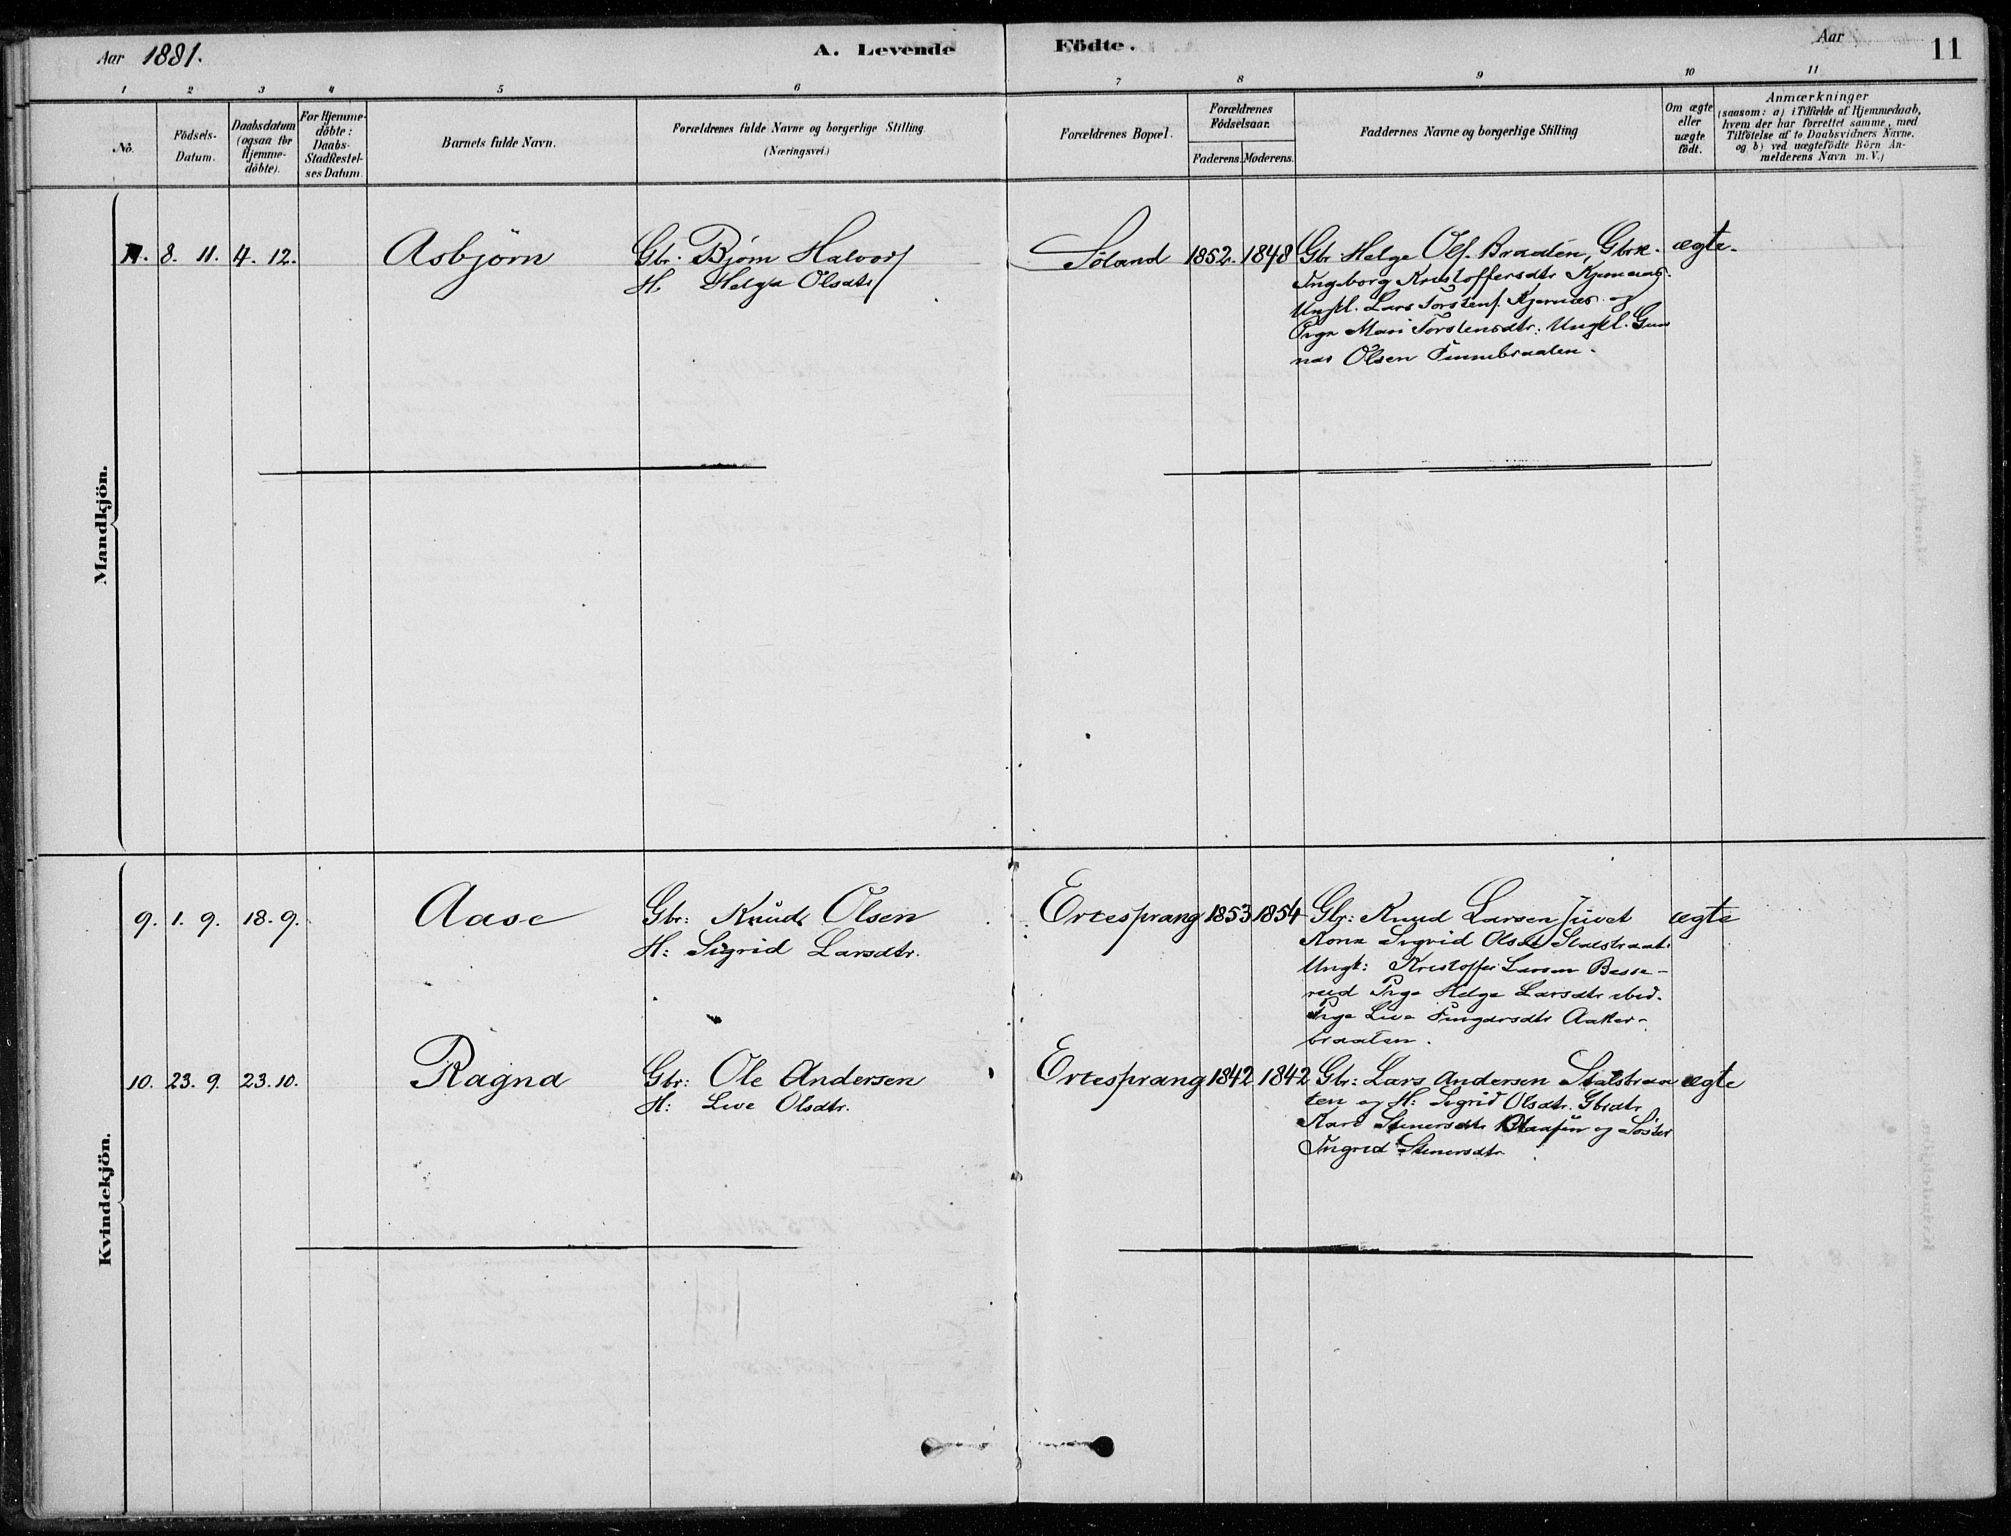 Aar 1881. A. Levende Födte. Aar 11
1 2 3 4 5 6 7 8 9 10 11
No.
Födsels-
Datum.
Daabsdatum
(ogsaa for
Hjemme-
döbte).
For Hjemme-
döbte:
Daabs-
Stadfæstel-
ses Datum.
Barnets fulde Navn.
Forældrenes fulde Navne og borgerlige Stilling
(Næringsvei.)
Forældrenes Bopæl.
Forældrenes
Födselsaar.
Faderens. Moderens.
Faddernes Navne og borgerlige Stilling
Om ægte
eller
uægte
födt.
Anmærkninger
(saasom: a) i Tilfælde af Hjemmedaab,
hvem der har forrettet samme, med
Tilföielse af to Daabsvidners Navne.
og b) ved uægtefödte Börn An-
melderens Navn m.V.)
Mandkjön.
11. 8. 11. 4. 12. Asbjörn Gbr. Bjørn Halvors Søland 1852. 1848 Gbr Helge Ols. Braaten, Gbrk. ægte.
H. Helga Olsdtr
Ingeborg Kristoffersdtr Kjernaas.
Ungkl. Lars Torstens. Kjernæs og
Pige Mari Torstensdtr: Ungkl. Gun
nar Olsen Finnebraaten.
Kvindekjön.
9. 1. 9. 18. 9. Aase Gbr: Knud Olsen Ertesprang 1853 1854 Gbr: Knud Larsen Juvet ægte
H: Sigrid Larsdtr.
Kone Sigrid Olsdt Stalstraat.
Ungk: Kristoffer Larsen Besse-
rud Pige Helga Larsdtr ibid.
Pige Live Fingarsdtr Aaker-
braaten.
10. 23. 9. 23. 10. Ragna Gbr: Ole Andersen Ertesprang 1842 1842 Gbr: Lars Andersen Stalstraa ægte
H: Live Olsdtr.
ten og H: Sigrid Olsdtr. Gbrdtr.
Kari Stenersdtr og Søster
Ingrid Stenersdtr